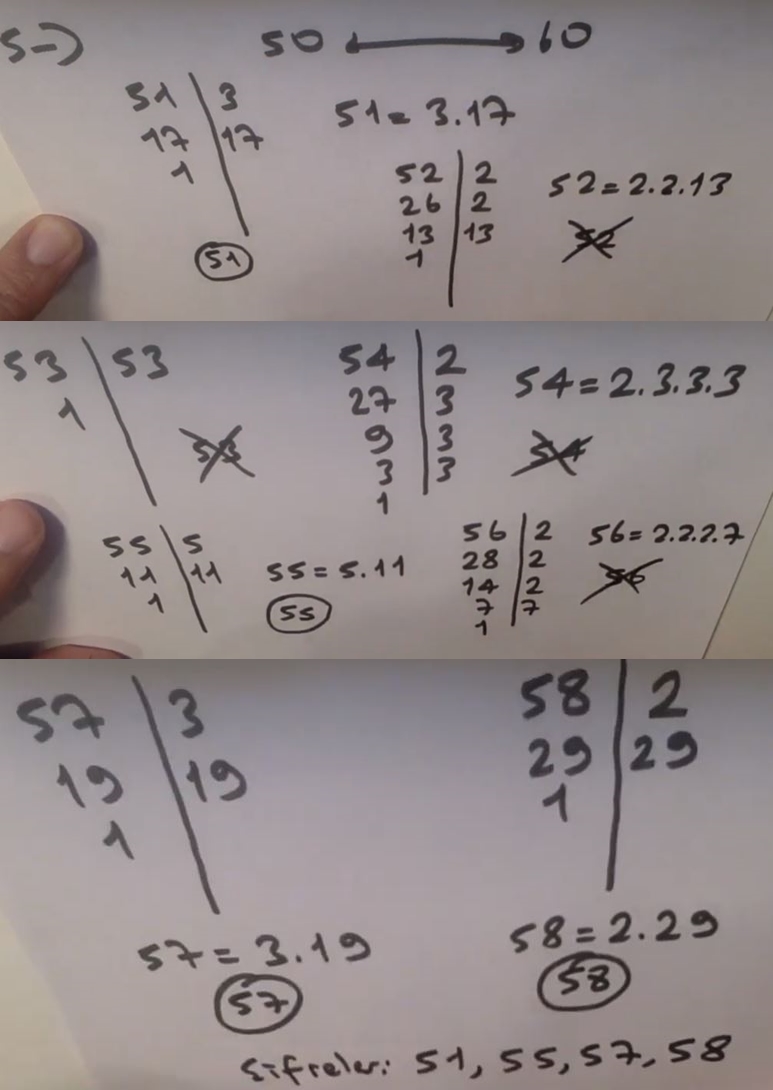 5-) 50 ↔ 60
51 | 3
17 | 17
1
51 = 3.17
(51)
52 | 2
26 | 2
13 | 13
1
52 = 2.2.13
52
53 | 53
1
53
54 | 2
27 | 3
9 | 3
3 | 3
1
54 = 2.3.3.3
54
55 | 5
11 | 11
1
55 = 5.11
(55)
56 | 2
28 | 2
14 | 2
7 | 7
1
56 = 2.2.2.7
56
57 | 3
19 | 19
1
57 = 3.19
(57)
58 | 2
29 | 29
1
58 = 2.29
(58)
Şifreler: 51, 55, 57, 58